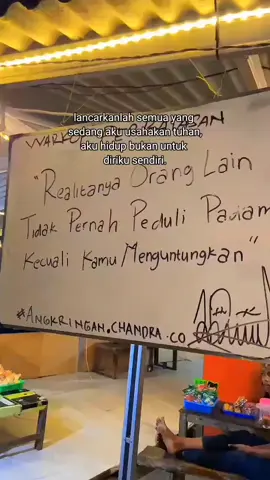 lancarkanlah semua yang
sedang aku usahakan tuhan,
aku hidup bukan untuk
diriku sendiri.
"Realitanya Orang Lain
Tidak Pernah Peduli Padamu
Kecuali Kamu Menguntungkan"
#Angkringan.chandra.co